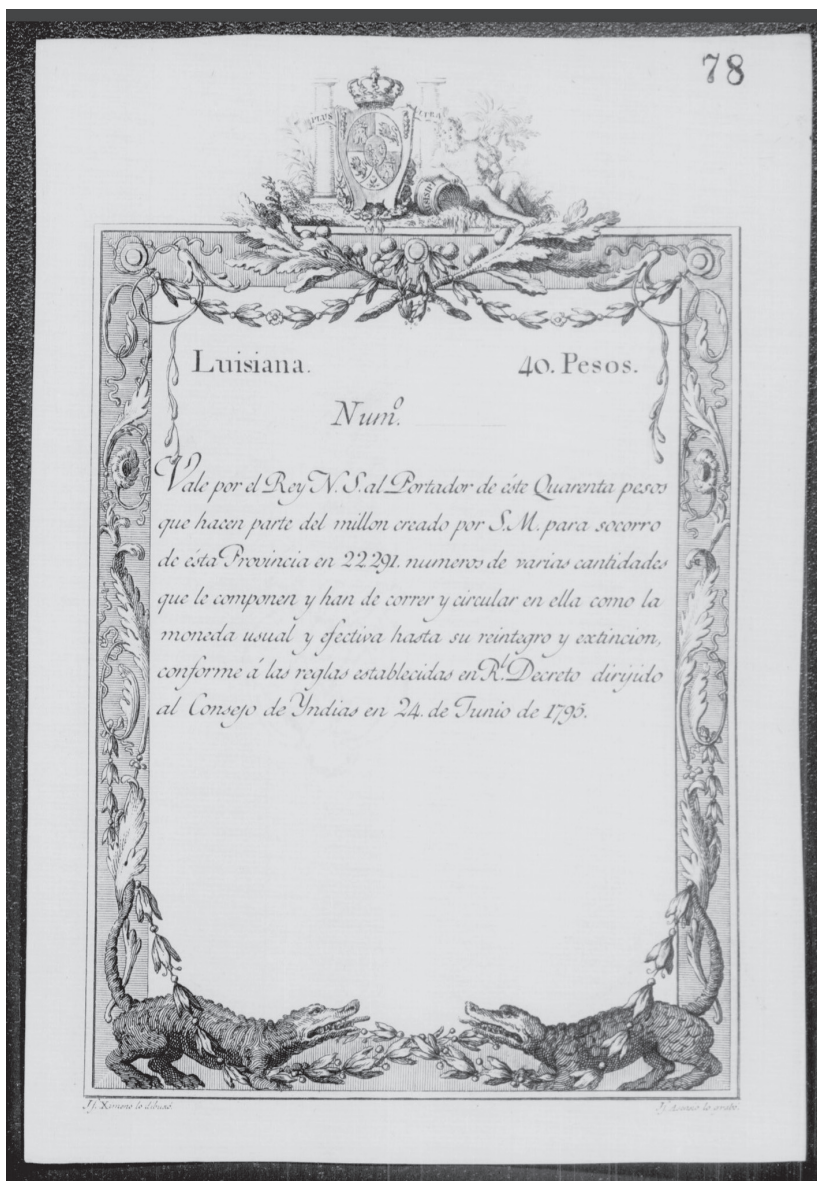 78
PLUS ULTRA
Luisiana. 40. Pesos.
Numº.
Vale por el Rey N. S. al Portador de éste Quarenta pesos
que hacen parte del millon creado por S. M. para socorro
de ésta Provincia en 22.291. numeros de varias cantidades
que le componen y han de correr y circular en ella como la
moneda usual y efectiva hasta su reintegro y extincion,
conforme á las reglas establecidas en Rl. Decreto dirijido
al Consejo de Yndias en 24. de Junio de 1795.
Jf. Ximeno lo dibuxó. Jf. Asensio lo grabó.